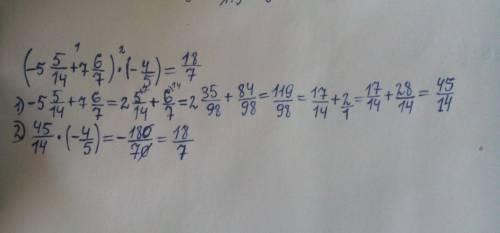 (-5 5/14 + 7 6/7) · (-4/5) = 18/7
1) -5 5/14 + 7 6/7 = 2 5/14 + 6/7 = 2 35/98 + 84/98 = 119/98 = 17/14 + 2/1 = 17/14 + 28/14 = 45/14
2) 45/14 · (-4/5) = -180/70 = 18/7